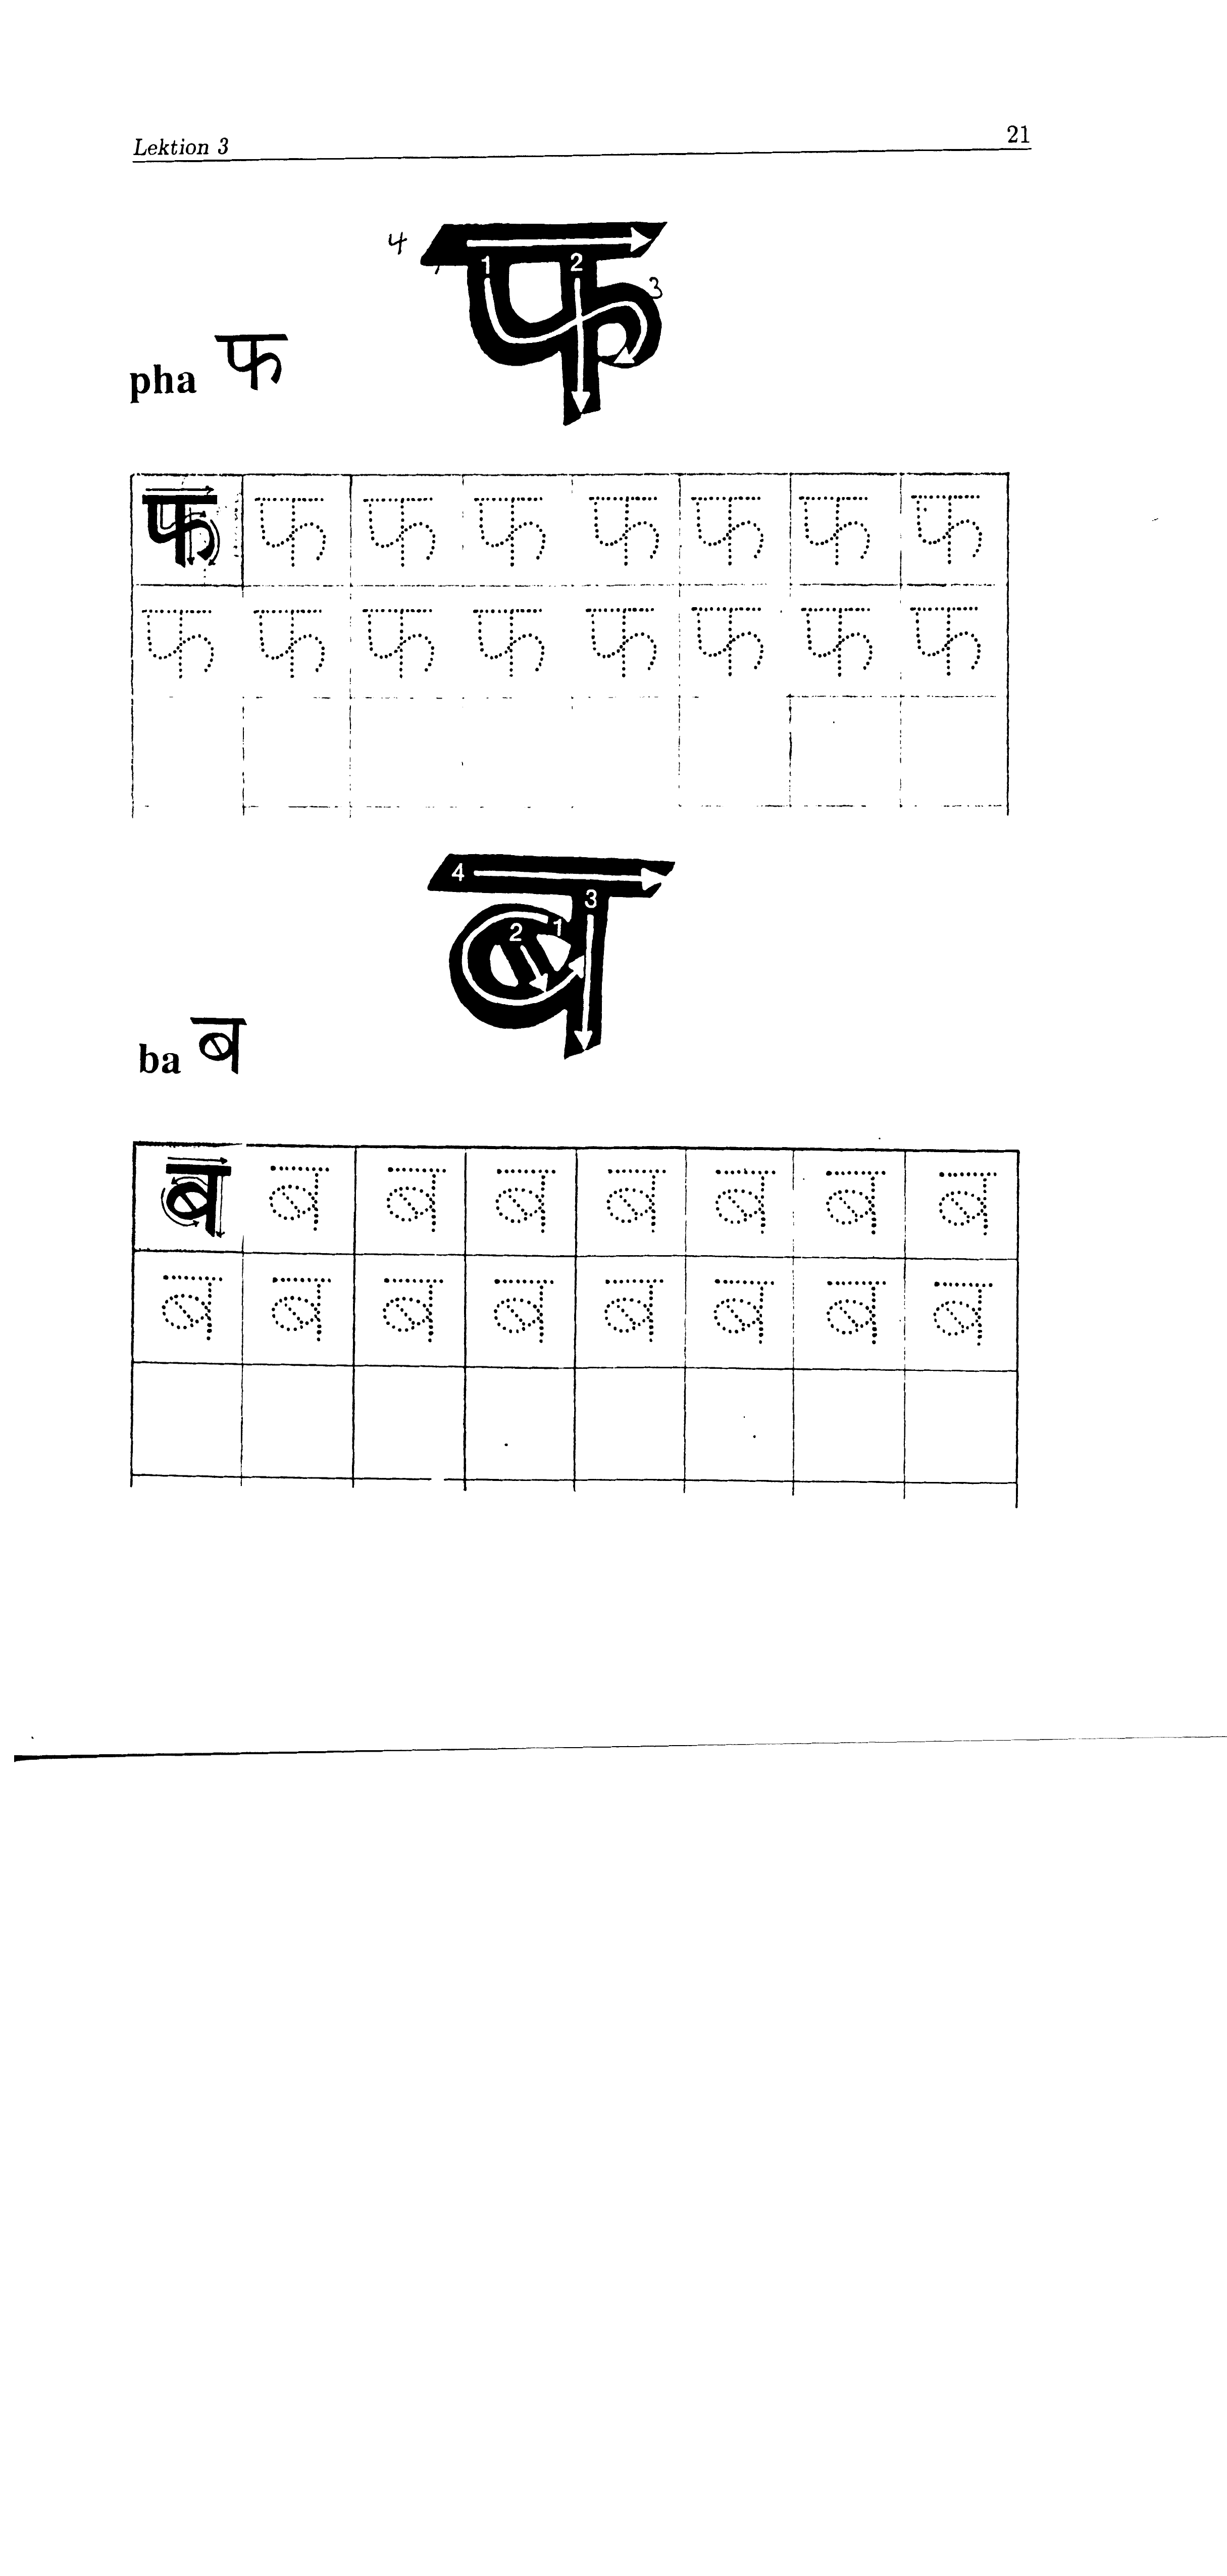 Lektion 3 21
4
1 2
3
pha फ
फ फ फ फ फ फ फ फ
फ फ फ फ फ फ फ फ
4
3
2 1
ba ब
ब ब ब ब ब ब ब ब
ब ब ब ब ब ब ब ब